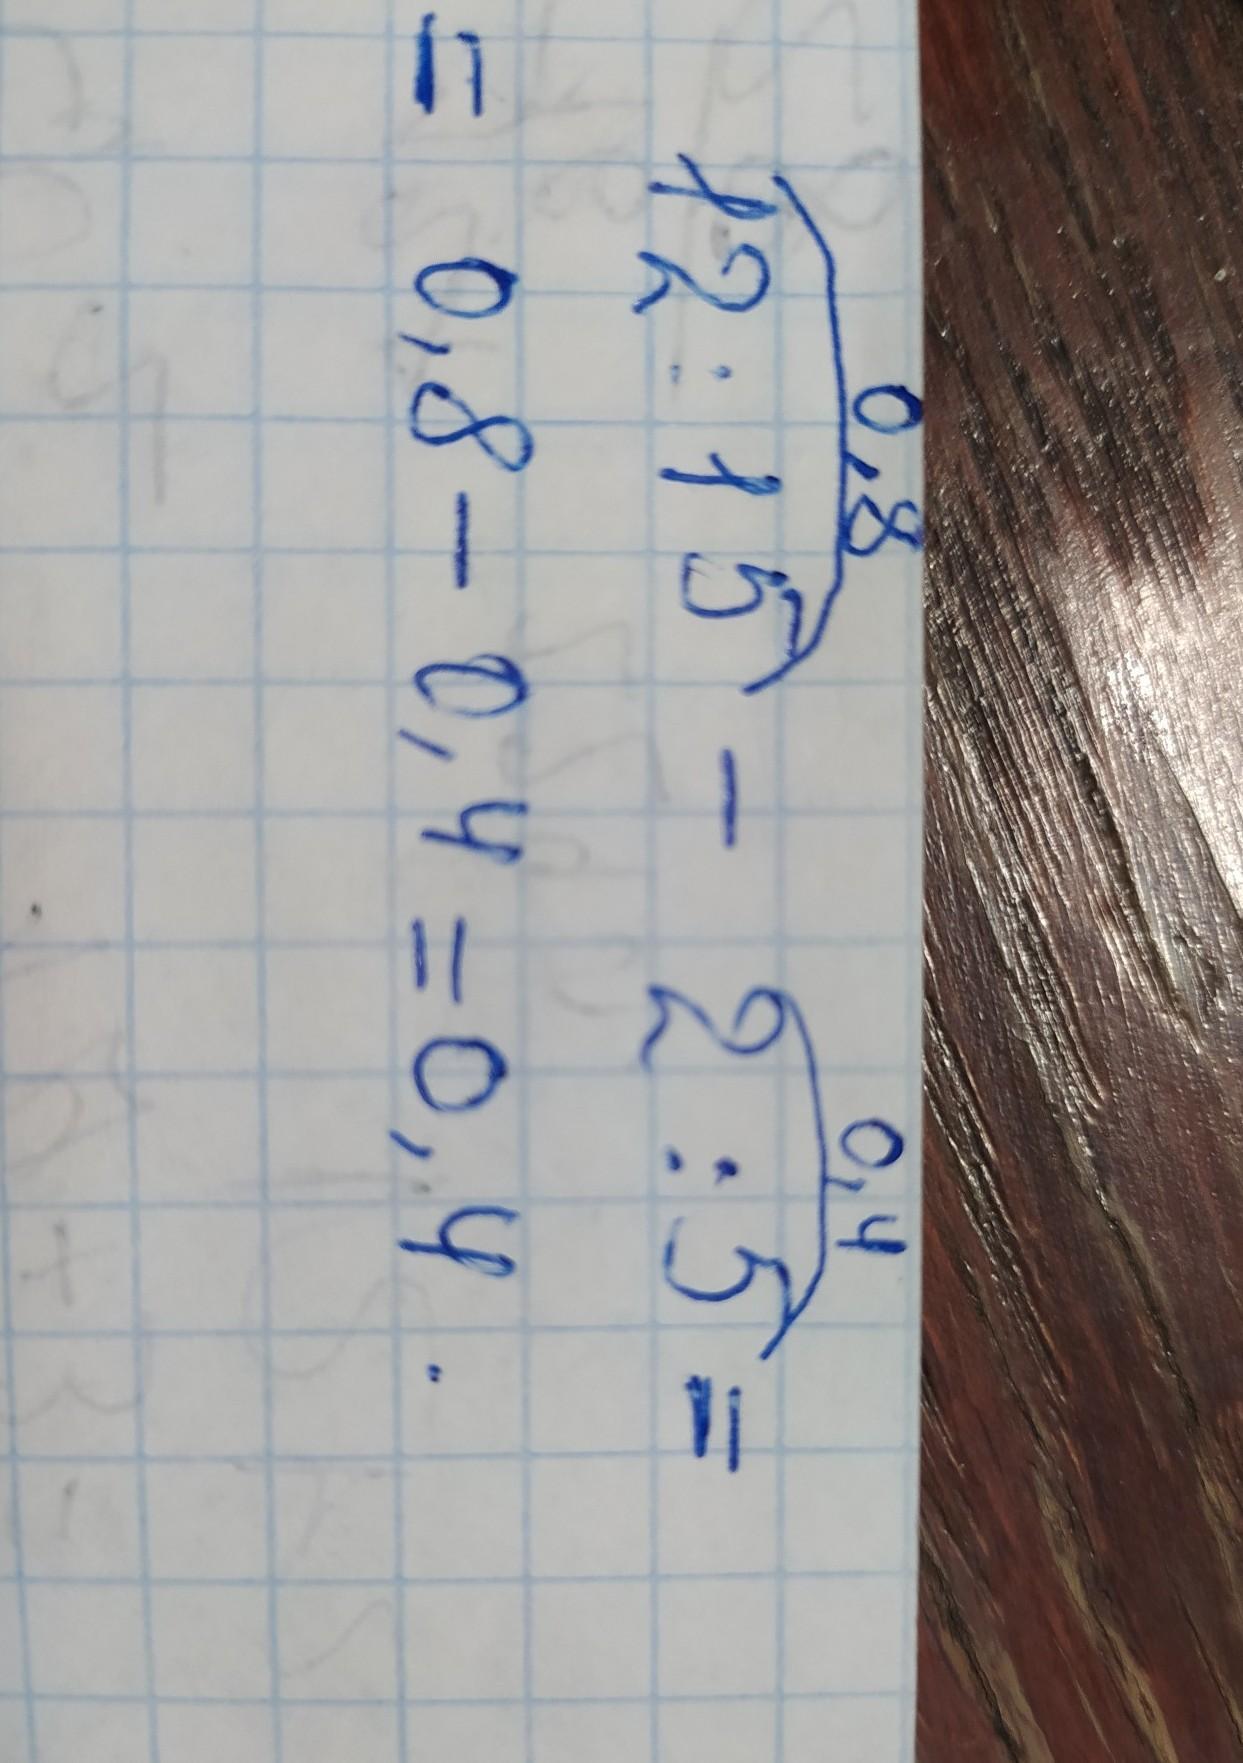 0,8 0,4
12 : 15 - 2 : 5 =
= 0,8 - 0,4 = 0,4.